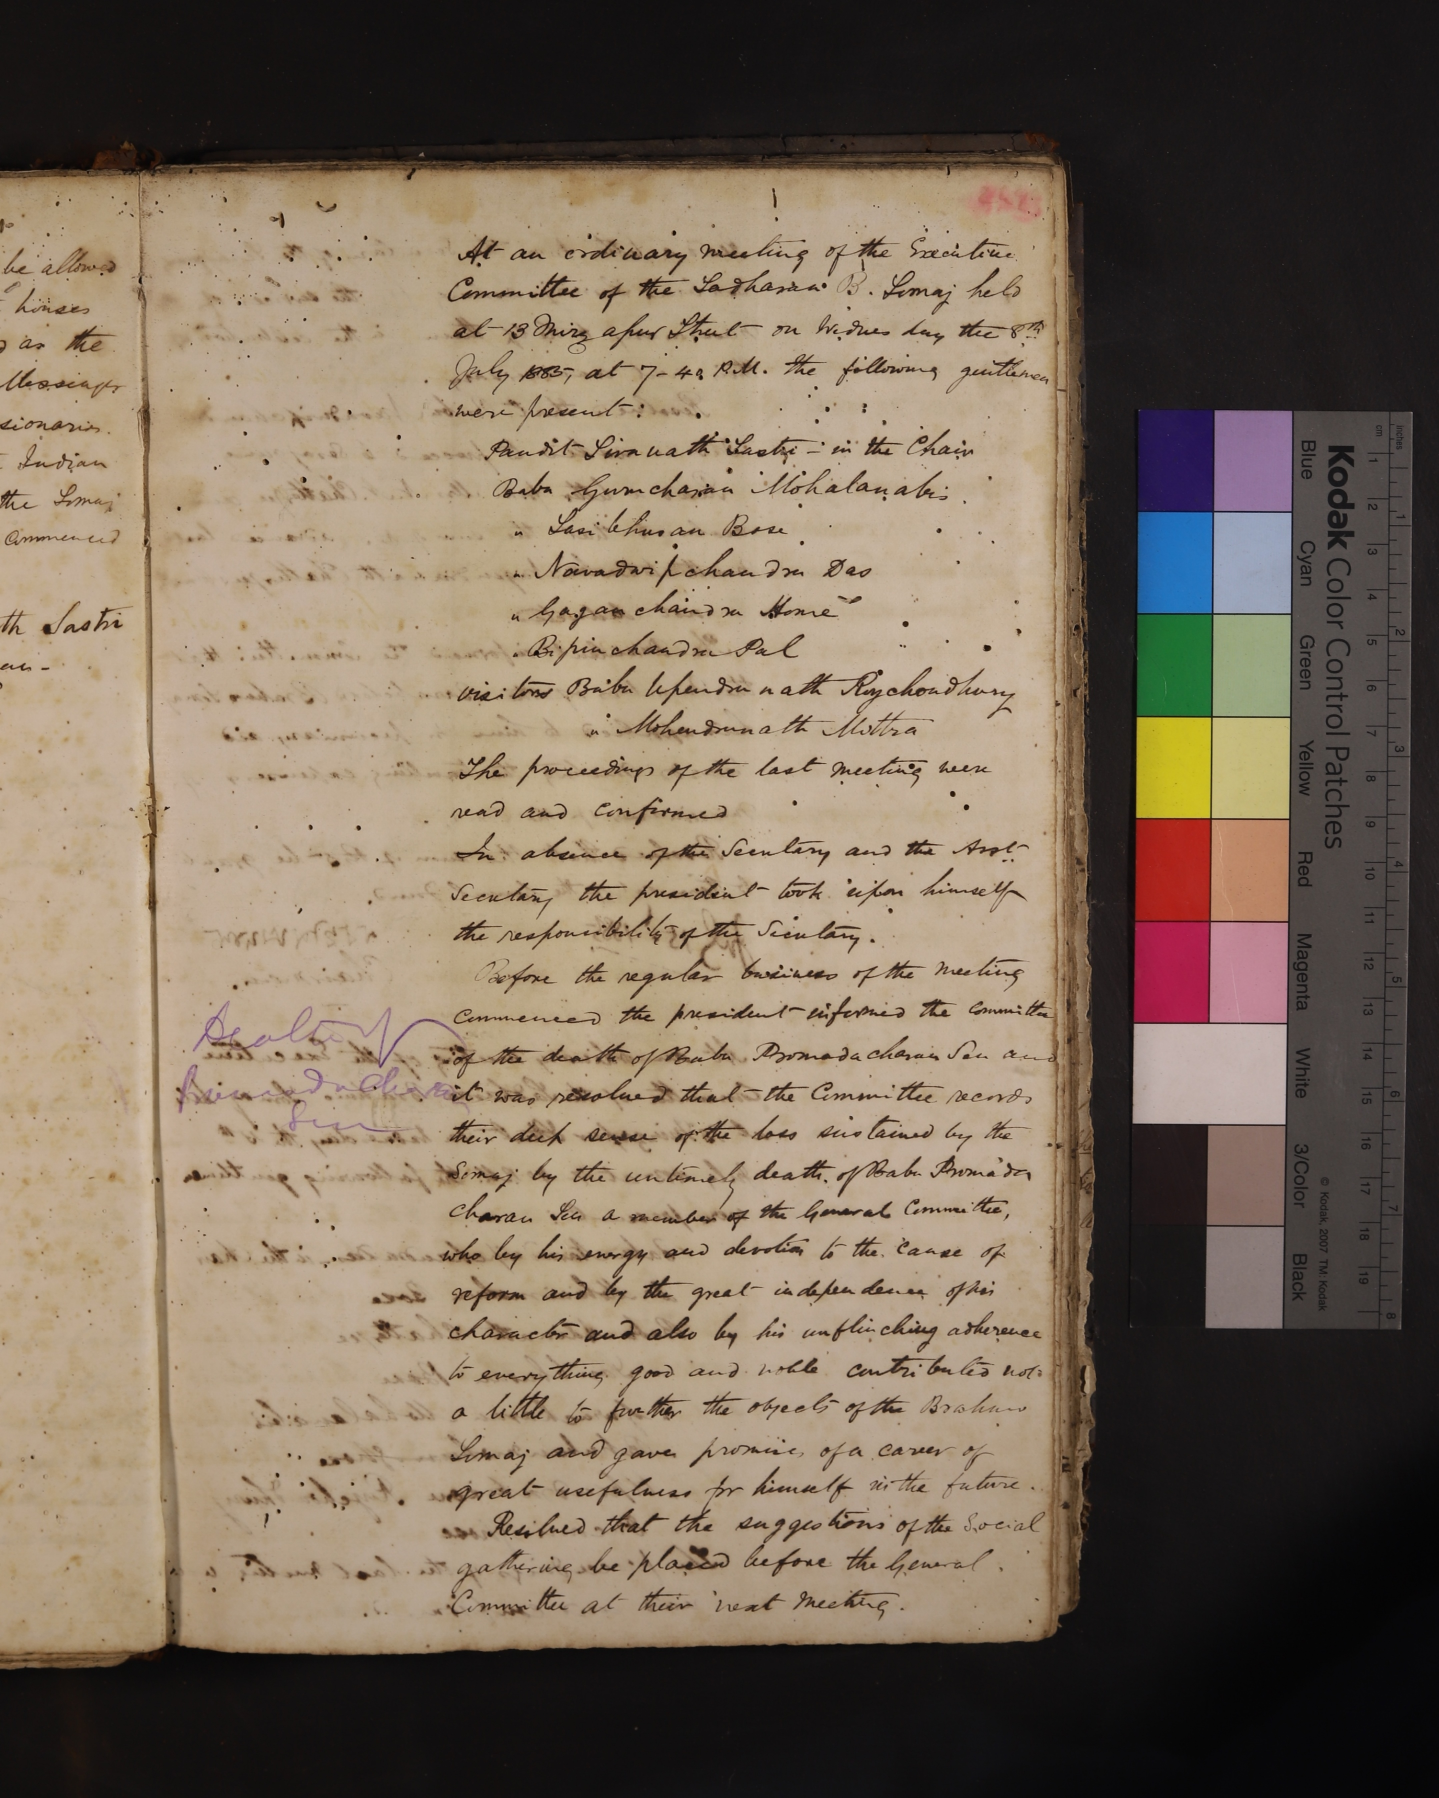 be allowed
houses
as the
Messenger
sionaries.
Indian
the Somaj
commenced
th Sastri
At an ordinary meeting of the Executive
Committee of the Sadharan B. Somaj held
at 13 Mirzapur Street on Wednesday the 8th
July 1885, at 7-40 P.M. the following gentlemen
were present:
Pandit Sivanath Sastri - in the Chair
Babu Gurucharan Mohalanabis
" Sasibhusan Bose
" Navadwipchandra Das
" Gaganchandra Home
" Bipinchandra Pal
visitors Babu Upendranath Roychoudhury
" Mohendranath Mittra
The proceedings of the last meeting were
read and confirmed
In absence of the Secretary and the Asst
Secretary the president took upon himself
the responsibility of the Secretary.
Before the regular business of the meeting
commenced the president informed the committee
of the death of Babu Promadacharan Sen and
it was resolved that the Committee records
their deep sense of the loss sustained by the
Somaj by the untimely death of Babu Promada
charan Sen a member of the General Committee,
who by his energy and devotion to the cause of
reform and by the great independence of his
character and also by his unflinching adherence
to everything good and noble contributed not
a little to further the objects of the Brahmo
Somaj and gave promise of a career of
great usefulness for himself in the future.
Resolved that the suggestions of the Social
gathering be placed before the General
Committee at their next meeting.
Death of
Promada Charan
Sen
Kodak Color Control Patches
Blue Cyan Green Yellow Red Magenta White 3/Color Black
© Kodak, 2007 TM: Kodak
inches 1 2 3 4 5 6 7 8
cm 1 2 3 4 5 6 7 8 9 10 11 12 13 14 15 16 17 18 19